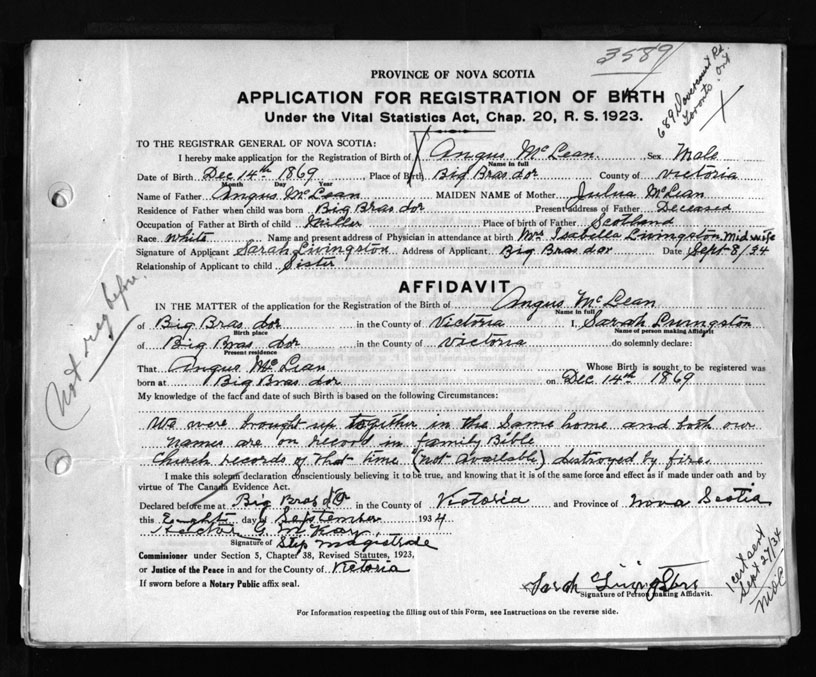 3589
689 Dovercourt Rd
Toronto Ont
X
PROVINCE OF NOVA SCOTIA
APPLICATION FOR REGISTRATION OF BIRTH
Under the Vital Statistics Act, Chap. 20, R. S. 1923.
TO THE REGISTRAR GENERAL OF NOVA SCOTIA:
I hereby make application for the Registration of Birth of Angus McLean Sex Male
Name in full
Date of Birth Dec 14th 1869 Place of Birth Big Bras dor County of Victoria
Month Day Year
Name of Father Angus McLean MAIDEN NAME of Mother Julua McLean
Residence of Father when child was born Big Bras dor Present address of Father Deceased
Occupation of Father at Birth of child Miller Place of birth of Father Scotland
Race White Name and present address of Physician in attendance at birth Mrs Isabella Livingston Midwife
Signature of Applicant Sarah Livingston Address of Applicant Big Bras dor Date Sept 8/34
Relationship of Applicant to child Sister
Not reg before
AFFIDAVIT
IN THE MATTER of the application for the Registration of the Birth of Angus McLean
Name in full
of Big Bras dor in the County of Victoria I, Sarah Livingston
Birth place Name of person making Affidavit
of Big Bras dor in the County of Victoria do solemnly declare:
Present residence
That Angus McLean Whose Birth is sought to be registered was
born at Big Bras dor on Dec 14th 1869
My knowledge of the fact and date of such Birth is based on the following Circumstances:
We were brought up together in the same home and both our
names are on record in family Bible
Church records of that time (not available) destroyed by fire.
I make this solemn declaration conscientiously believing it to be true, and knowing that it is of the same force and effect as if made under oath and by
virtue of The Canada Evidence Act.
Declared before me at Big Bras dor in the County of Victoria and Province of Nova Scotia
this Eight day of September 1934
Hector G McKay
Signature of Stip magistrate
Commissioner under Section 5, Chapter 38, Revised Statutes, 1923,
or Justice of the Peace in and for the County of Victoria
If sworn before a Notary Public affix seal.
Sarah Livingston
Signature of Person making Affidavit.
1 cert sent
Sept 27/34
For Information respecting the filling out of this Form, see Instructions on the reverse side.